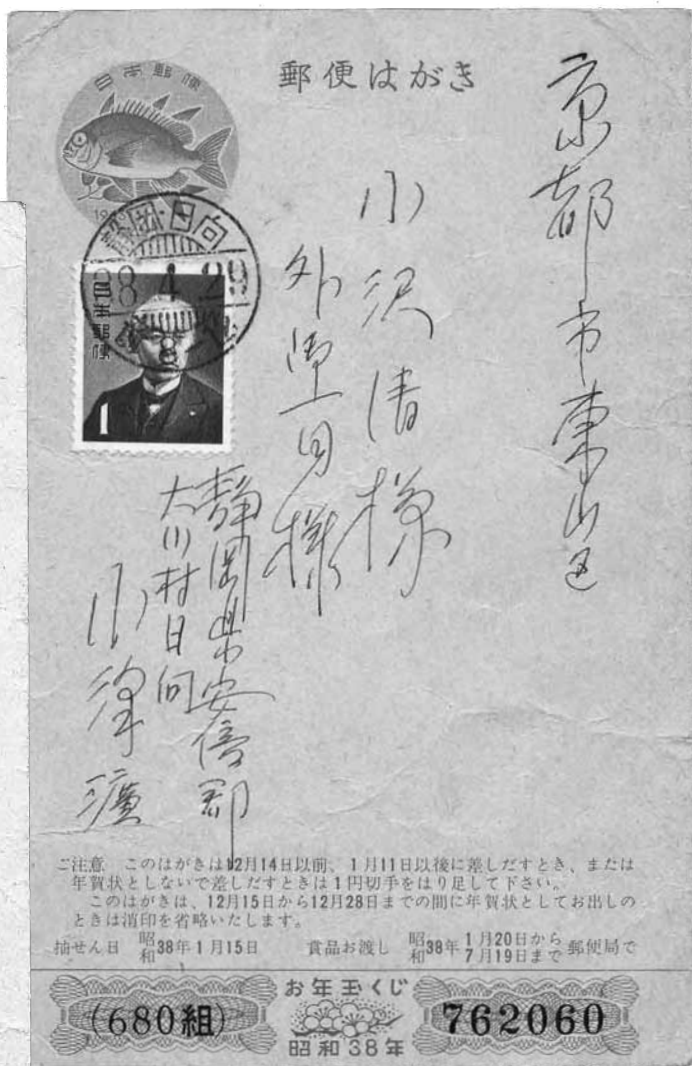 郵便はがき
日本郵便
静岡・日向
38.4.29
日本郵便
1
京都市東山区
小沢清様
外皆々様
静岡県安倍郡
大川村日向
小澤
ご注意 このはがきは12月14日以前、1月11日以後に差しだすとき、または
年賀状としないで差しだすときは1円切手をはり足して下さい。
このはがきは、12月15日から12月28日までの間に年賀状としてお出しの
ときは消印を省略いたします。
抽せん日 昭和38年1月15日 賞品お渡し 昭和38年1月20日から7月19日まで郵便局で
お年玉くじ
(680組)
762060
昭和38年